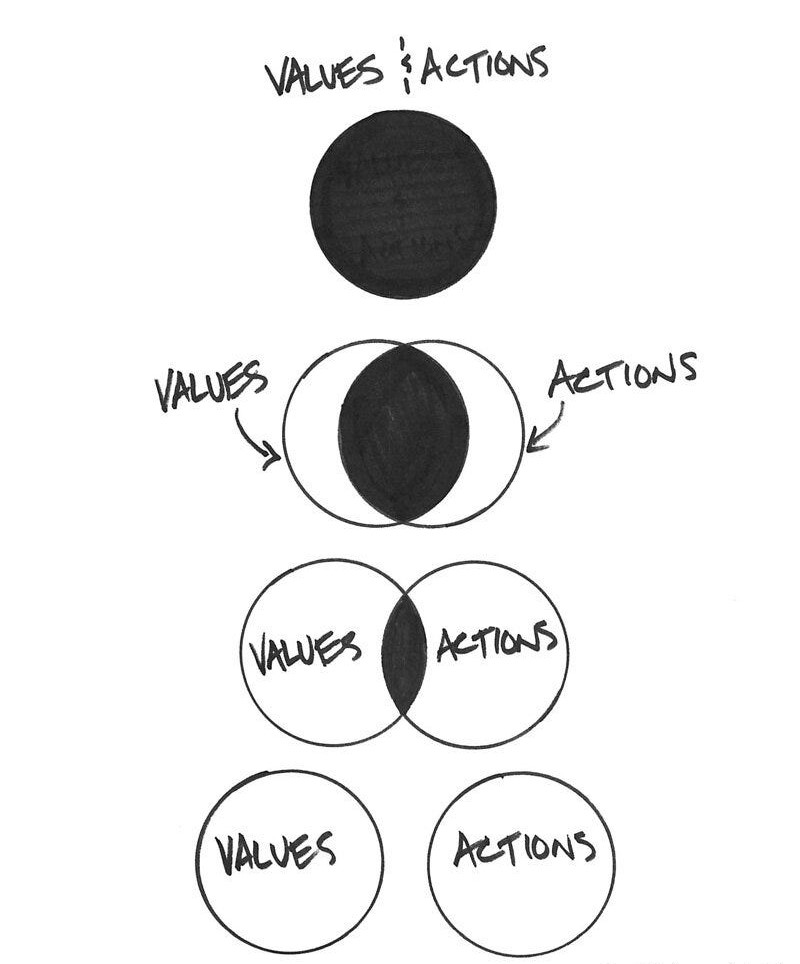 VALUES & ACTIONS
VALUES
ACTIONS
VALUES
ACTIONS
VALUES
ACTIONS